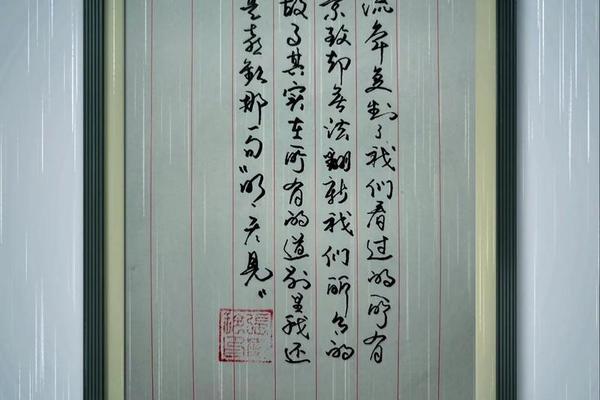 流年复制了我们看过的所有
景致却无法翻新我们所的
故事其实在所有的道别里我还
是喜欢那一句“明天见”